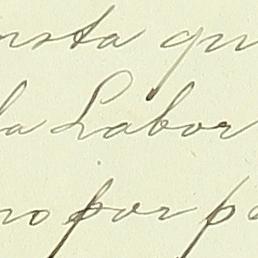 nsta qu
la Labor
no por pa